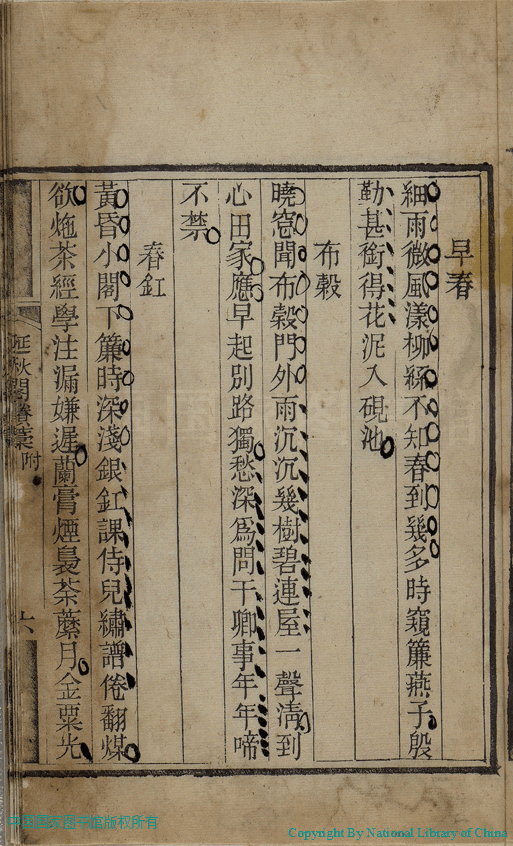 早春
細雨微風漾柳絲不知春到幾多時窺簾燕子殷
勤甚銜得花泥入硯池
布穀
曉窓聞布穀門外雨沉沉幾樹碧連屋一聲淸到
心田家應早起別路獨愁深爲問干卿事年年啼
不禁
春釭
黃昏小閣下簾時深淺銀釭課侍兒繡譜倦翻煤
欲炧茶經學注漏嫌遲蘭膏煙裊荼蘼月金粟光
延秋閣賸藁 附
六
Copyright By National Library of China